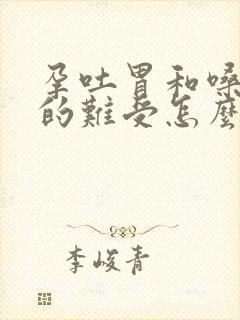 孕吐胃和嗓
的難受怎麼
李峻青